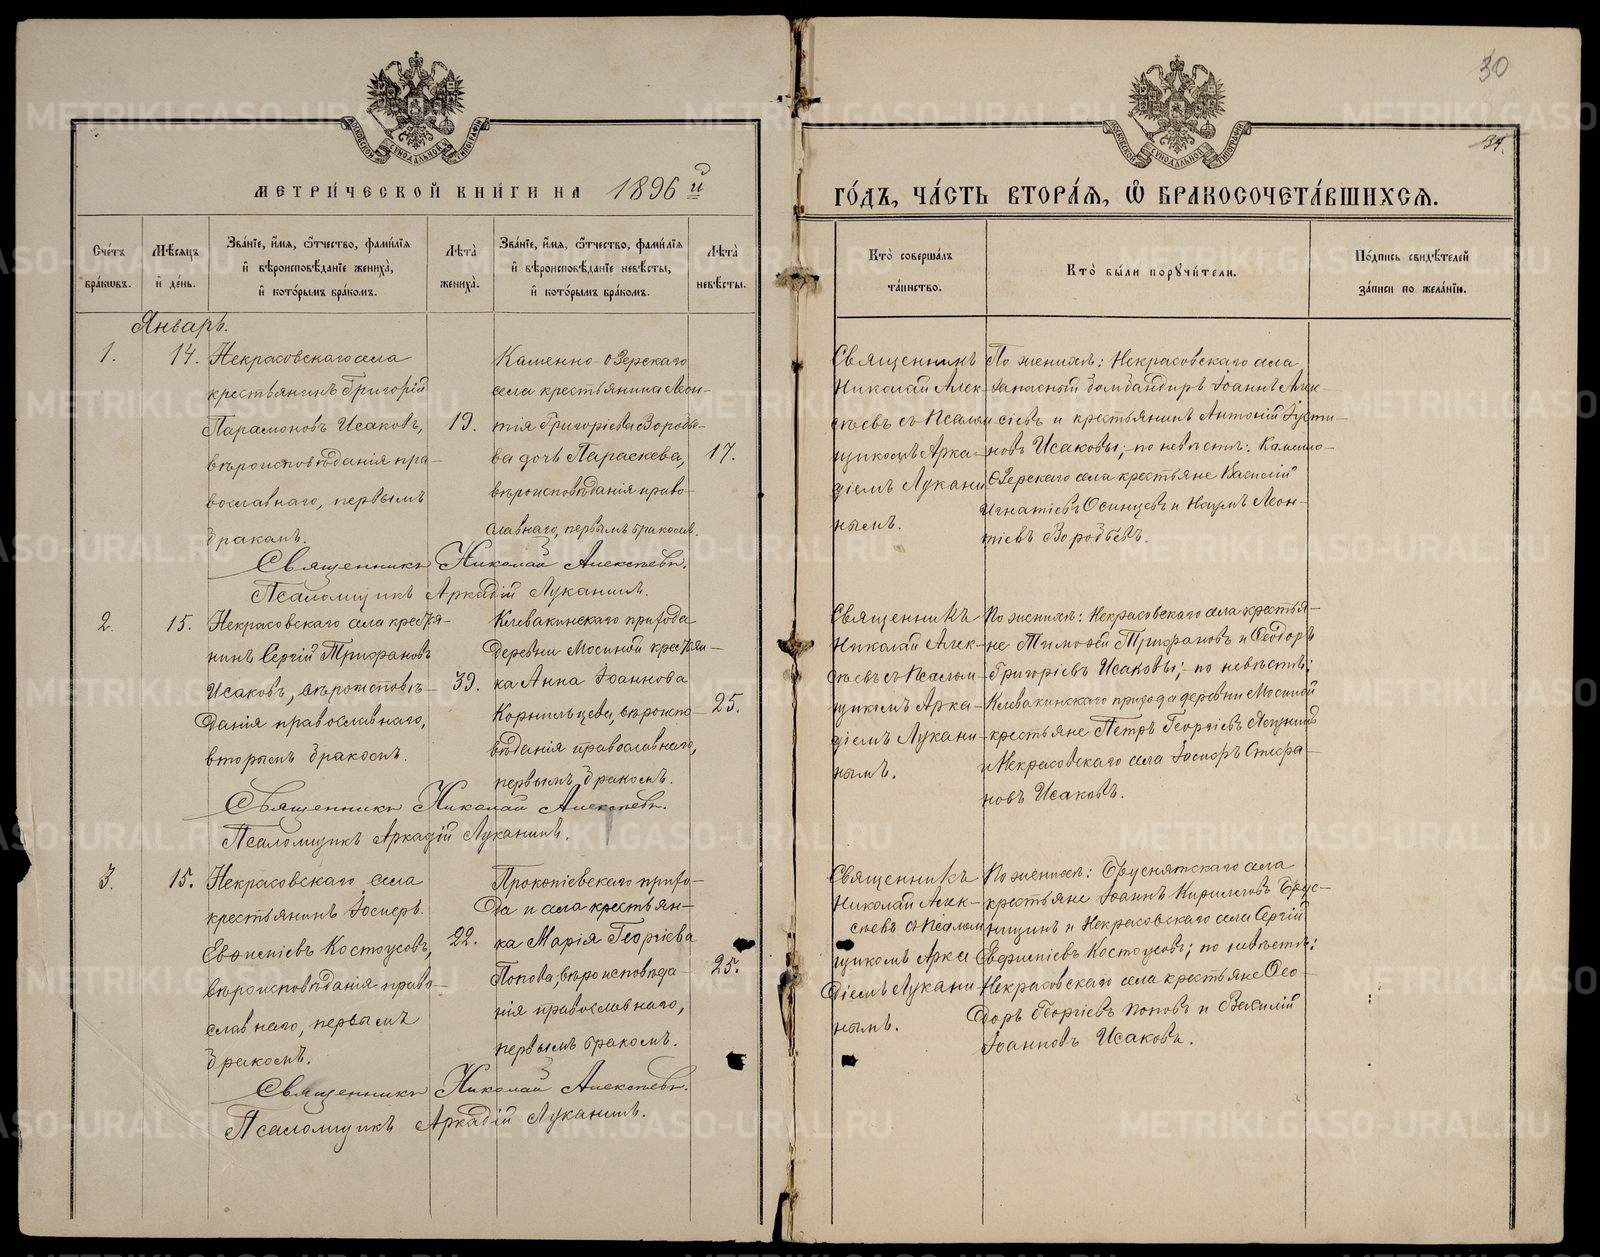 30
34.
МЕТРИ́ЧЕСКОЙ КНИ́ГИ НА 1896 й
ГО́ДЪ, ЧА́СТЬ ВТОРА́Я, Ѿ БРАКОСОЧЕТА́ВШИХСЯ.
Сче́тъ бра́ковъ.
Мѣ́сяцъ и де́нь.
Зва́нїе, и́мя, ѻ́тчество, фами́лїя
и҆ вѣроисповѣ́данїе жениха̀,
и҆ кото́рымъ бра́комъ.
Лѣта̀
жениха̀.
Зва́нїе, и́мя, ѻ́тчество, фами́лїя
и҆ вѣроисповѣ́данїе невѣ́сты,
и҆ кото́рымъ бра́комъ.
Лѣта̀
невѣ́сты.
Кто̀ соверша́лъ
та́инство.
Кто̀ бы́ли порꙋчи́тели.
По́дпись свидѣ́телей
за́писи по жела́нїю.
Январь.
1.
14.
Некрасовскаго села
крестьянинъ Григорій
Парамоновъ Исаковъ,
вѣроисповѣданія пра-
вославнаго, первымъ
бракомъ.
19.
Каменно-озерскаго
села крестьянина Леон-
тія Григоріева Воробье-
ва дочь Параскева,
вѣроисповѣданія право-
славнаго, первымъ бракомъ.
17.
Священникъ
Николай Алек-
сѣевъ съ Псалом
щикомъ Арка-
діемъ Лукани
нымъ.
По женихѣ: Некрасовскаго села
запасный бомбандиръ Іоаннъ Алек-
сіевъ и крестьянинъ Антоній Іусти-
новъ Исаковы; по невѣстѣ: Каменно-
озерскаго села крестьяне Василій
Игнатіевъ Осинцевъ и Наумъ Леон-
тіевъ Воробьевъ.
Священникъ Николай Алексѣевъ.
Псаломщикъ Аркадій Луканинъ.
2.
15.
Некрасовскаго села крестья-
нинъ Сергій Трифановъ
Исаковъ, вѣроисповѣ-
данія православнаго,
вторымъ бракомъ.
39.
Клевакинскаго прихода
деревни Мосиной крестьян-
ка Анна Іоаннова
Корнильцева, вѣроиспо-
вѣданія православнаго,
первымъ бракомъ.
25.
Священникъ
Николай Алек-
сѣевъ съ Псалом
щикомъ Арка-
діемъ Лукани-
нымъ.
По женихѣ: Некрасовскаго села крестья-
не Тимофей Трифановъ и Ѳеодоръ
Григоріевъ Исаковы; по невѣстѣ:
Клевакинскаго прихода деревни Мосиной
крестьяне Петръ Георгіевъ
и Некрасовскаго села Іосифъ Стефа-
новъ Исаковъ.
Священникъ Николай Алексѣевъ.
Псаломщикъ Аркадій Луканинъ.
3.
15.
Некрасовскаго села
крестьянинъ Іосифъ
Евфиміевъ Костоусовъ,
вѣроисповѣданія право-
славнаго, первымъ
бракомъ.
22.
Прокопіевскаго прихо-
да и села крестьян-
ка Марія Георгіева
Попова, вѣроисповѣда-
нія православнаго,
первымъ бракомъ.
25.
Священникъ
Николай Алек-
сѣевъ съ Псалом
щикомъ Арка
діемъ Лукани
нымъ.
По женихѣ: Бруснятскаго села
крестьяне Іоаннъ Кириловъ Брус-
ницинъ и Некрасовскаго села Сергій
Евфиміевъ Костоусовъ; по невѣстѣ:
Некрасовскаго села крестьяне Ѳео-
доръ Георгіевъ Поповъ и Василій
Іоанновъ Исаковъ.
Священникъ Николай Алексѣевъ.
Псаломщикъ Аркадій Луканинъ.
METRIKI.GASO-URAL.RU